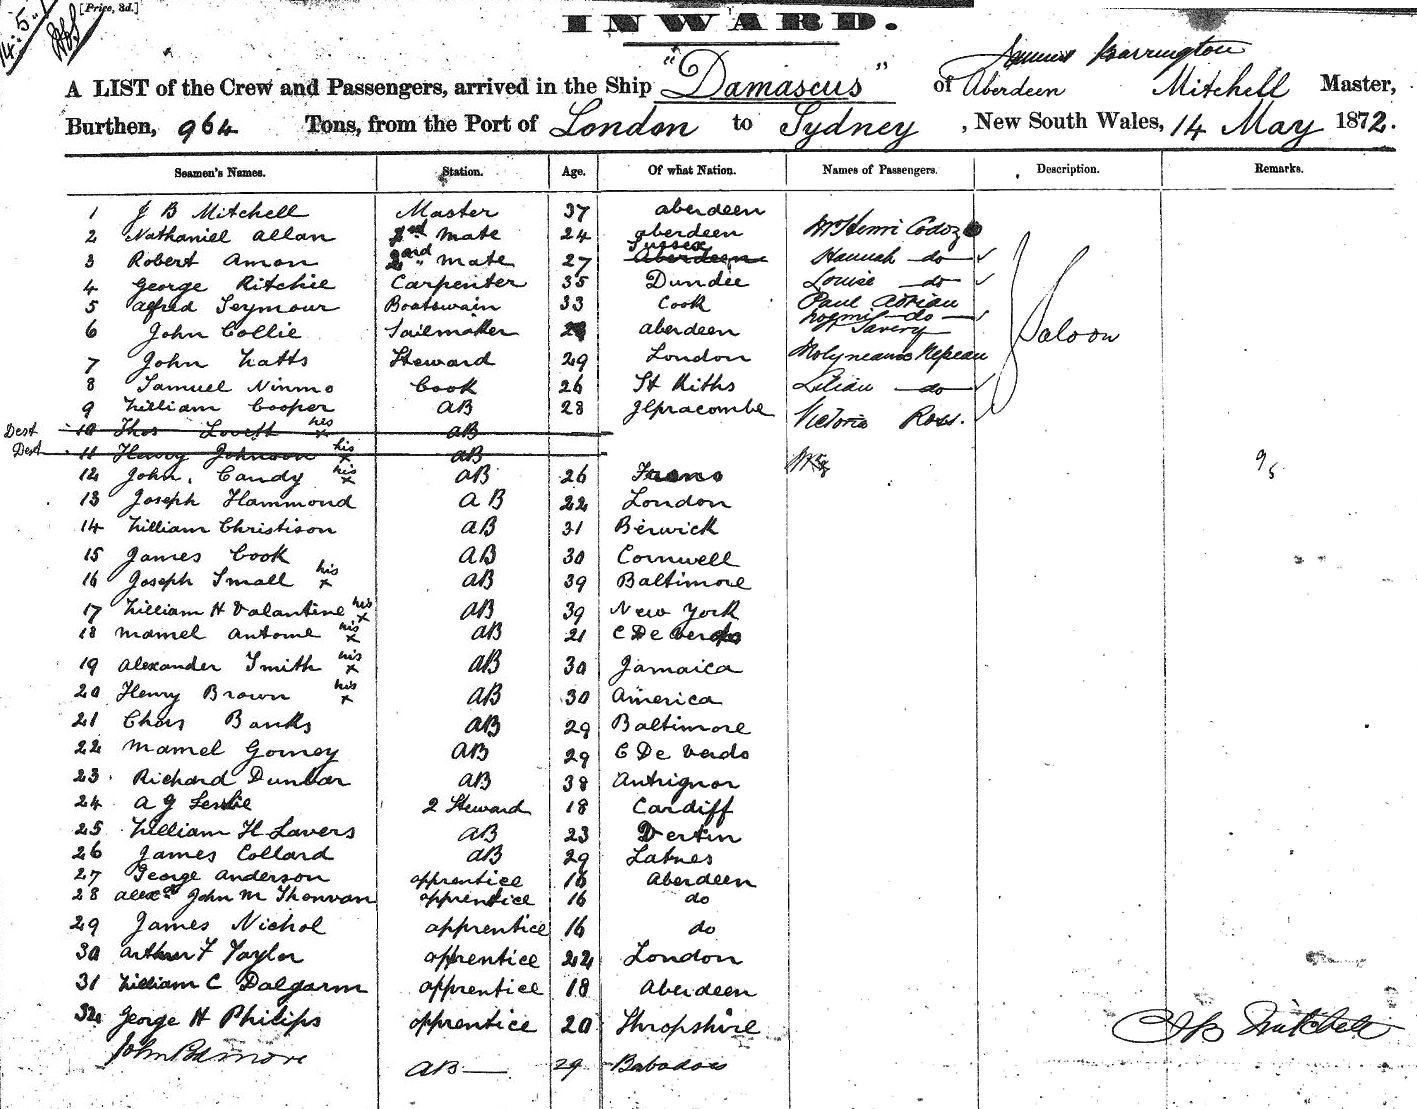 14.5.
[Price, 3d.]
INWARD.
A LIST of the Crew and Passengers, arrived in the Ship "Damascus" of Aberdeen Mitchell Master,
Barrington
Burthen, 964 Tons, from the Port of London to Sydney, New South Wales, 14 May 1872.
Seamen's Names. Station. Age. Of what Nation. Names of Passengers. Description. Remarks.
1 J B Mitchell Master 37 aberdeen
2 Nathaniel Allan 2nd Mate 24 aberdeen Mr Henri
3 Robert Amon mate 27 Sussex Aberdeen Hannah do
4 George Ritchie Carpenter 35 Dundee Louise do
5 alfred Seymour Boatswain 33 Cook Paul Adrian
do Savery
6 John Collie Sailmaker aberdeen Saloon
7 John Watts Steward 29 London Molyneaux Nepean
8 Samuel Ninmo Cook 26 St Kiths Lilian do
9 William Cooper AB 28 Ilpracombe Victoria Ross.
Dest 10 Thos Lovitt his x AB
Dest 11 Henry Johnson his x AB
12 John Candy his x AB 26 9/5
13 Joseph Hammond AB 22 London
14 William Christison AB 31 Berwick
15 James Cook AB 30 Cornwell
16 Joseph Small his x AB 39 Baltimore
17 William H Valantine his x AB 39 New York
18 Mamel Antome his x AB 21 C De Verds
19 Alexander Smith his x AB 30 Jamaica
20 Henry Brown his x AB 30 America
21 Chas Banks AB 29 Baltimore
22 Mamel Gomey AB 29 C De Verds
23 Richard Dunbar AB 38 Antriguor
24 A G Leslie 2 Steward 18 Cardiff
25 William H Lavers AB 23
26 James Collard AB 29
27 George Anderson apprentice 16 Aberdeen
28 Alexr John M Thonvan apprentice 16 do
29 James Nichol apprentice 16 do
30 Arthur F Taylor apprentice 22 London
31 William C Dalgarm apprentice 18 Aberdeen
32 George H Philips apprentice 20 Shropshire
John Padmore AB 29 Babados
J B Mitchell